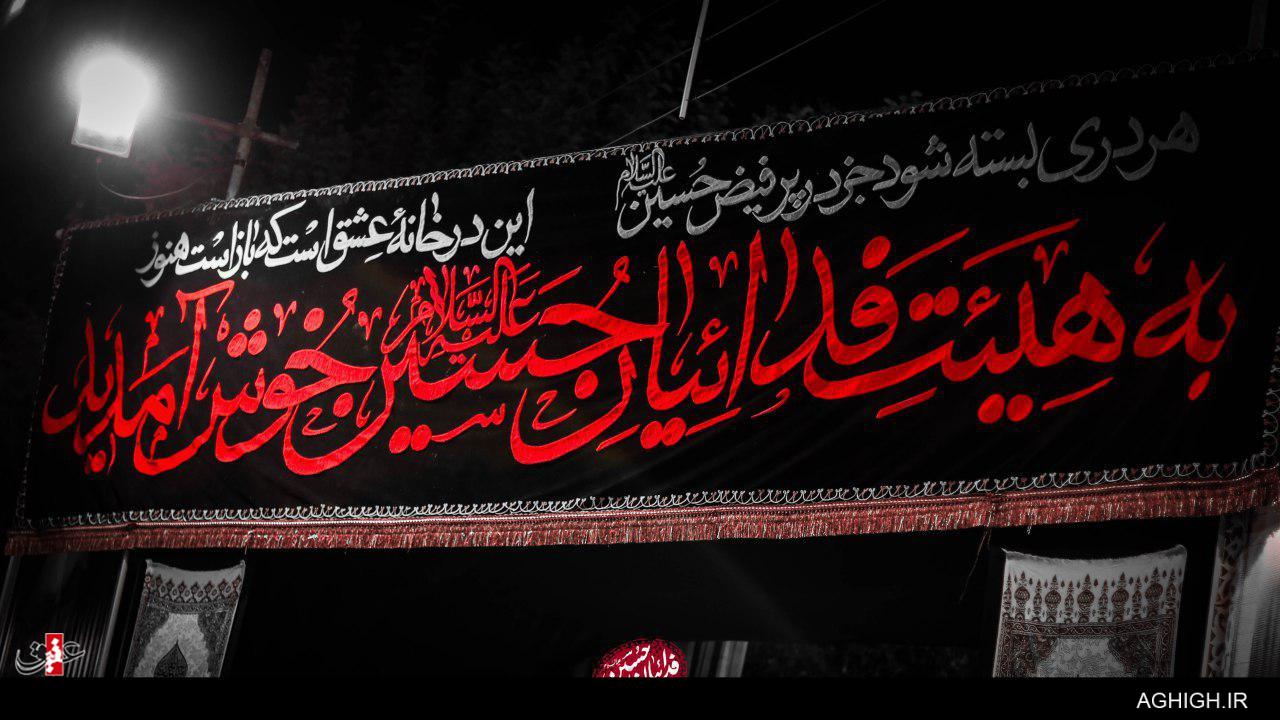 هر دری بسته شود جز در پر فیض حسین علیه السلام
این در خانهٔ عشق است که باز است هنوز
به هیئت فدائیان حسین علیه السلام خوش آمدید
فدائیان حسین
عقیق
AGHIGH.IR